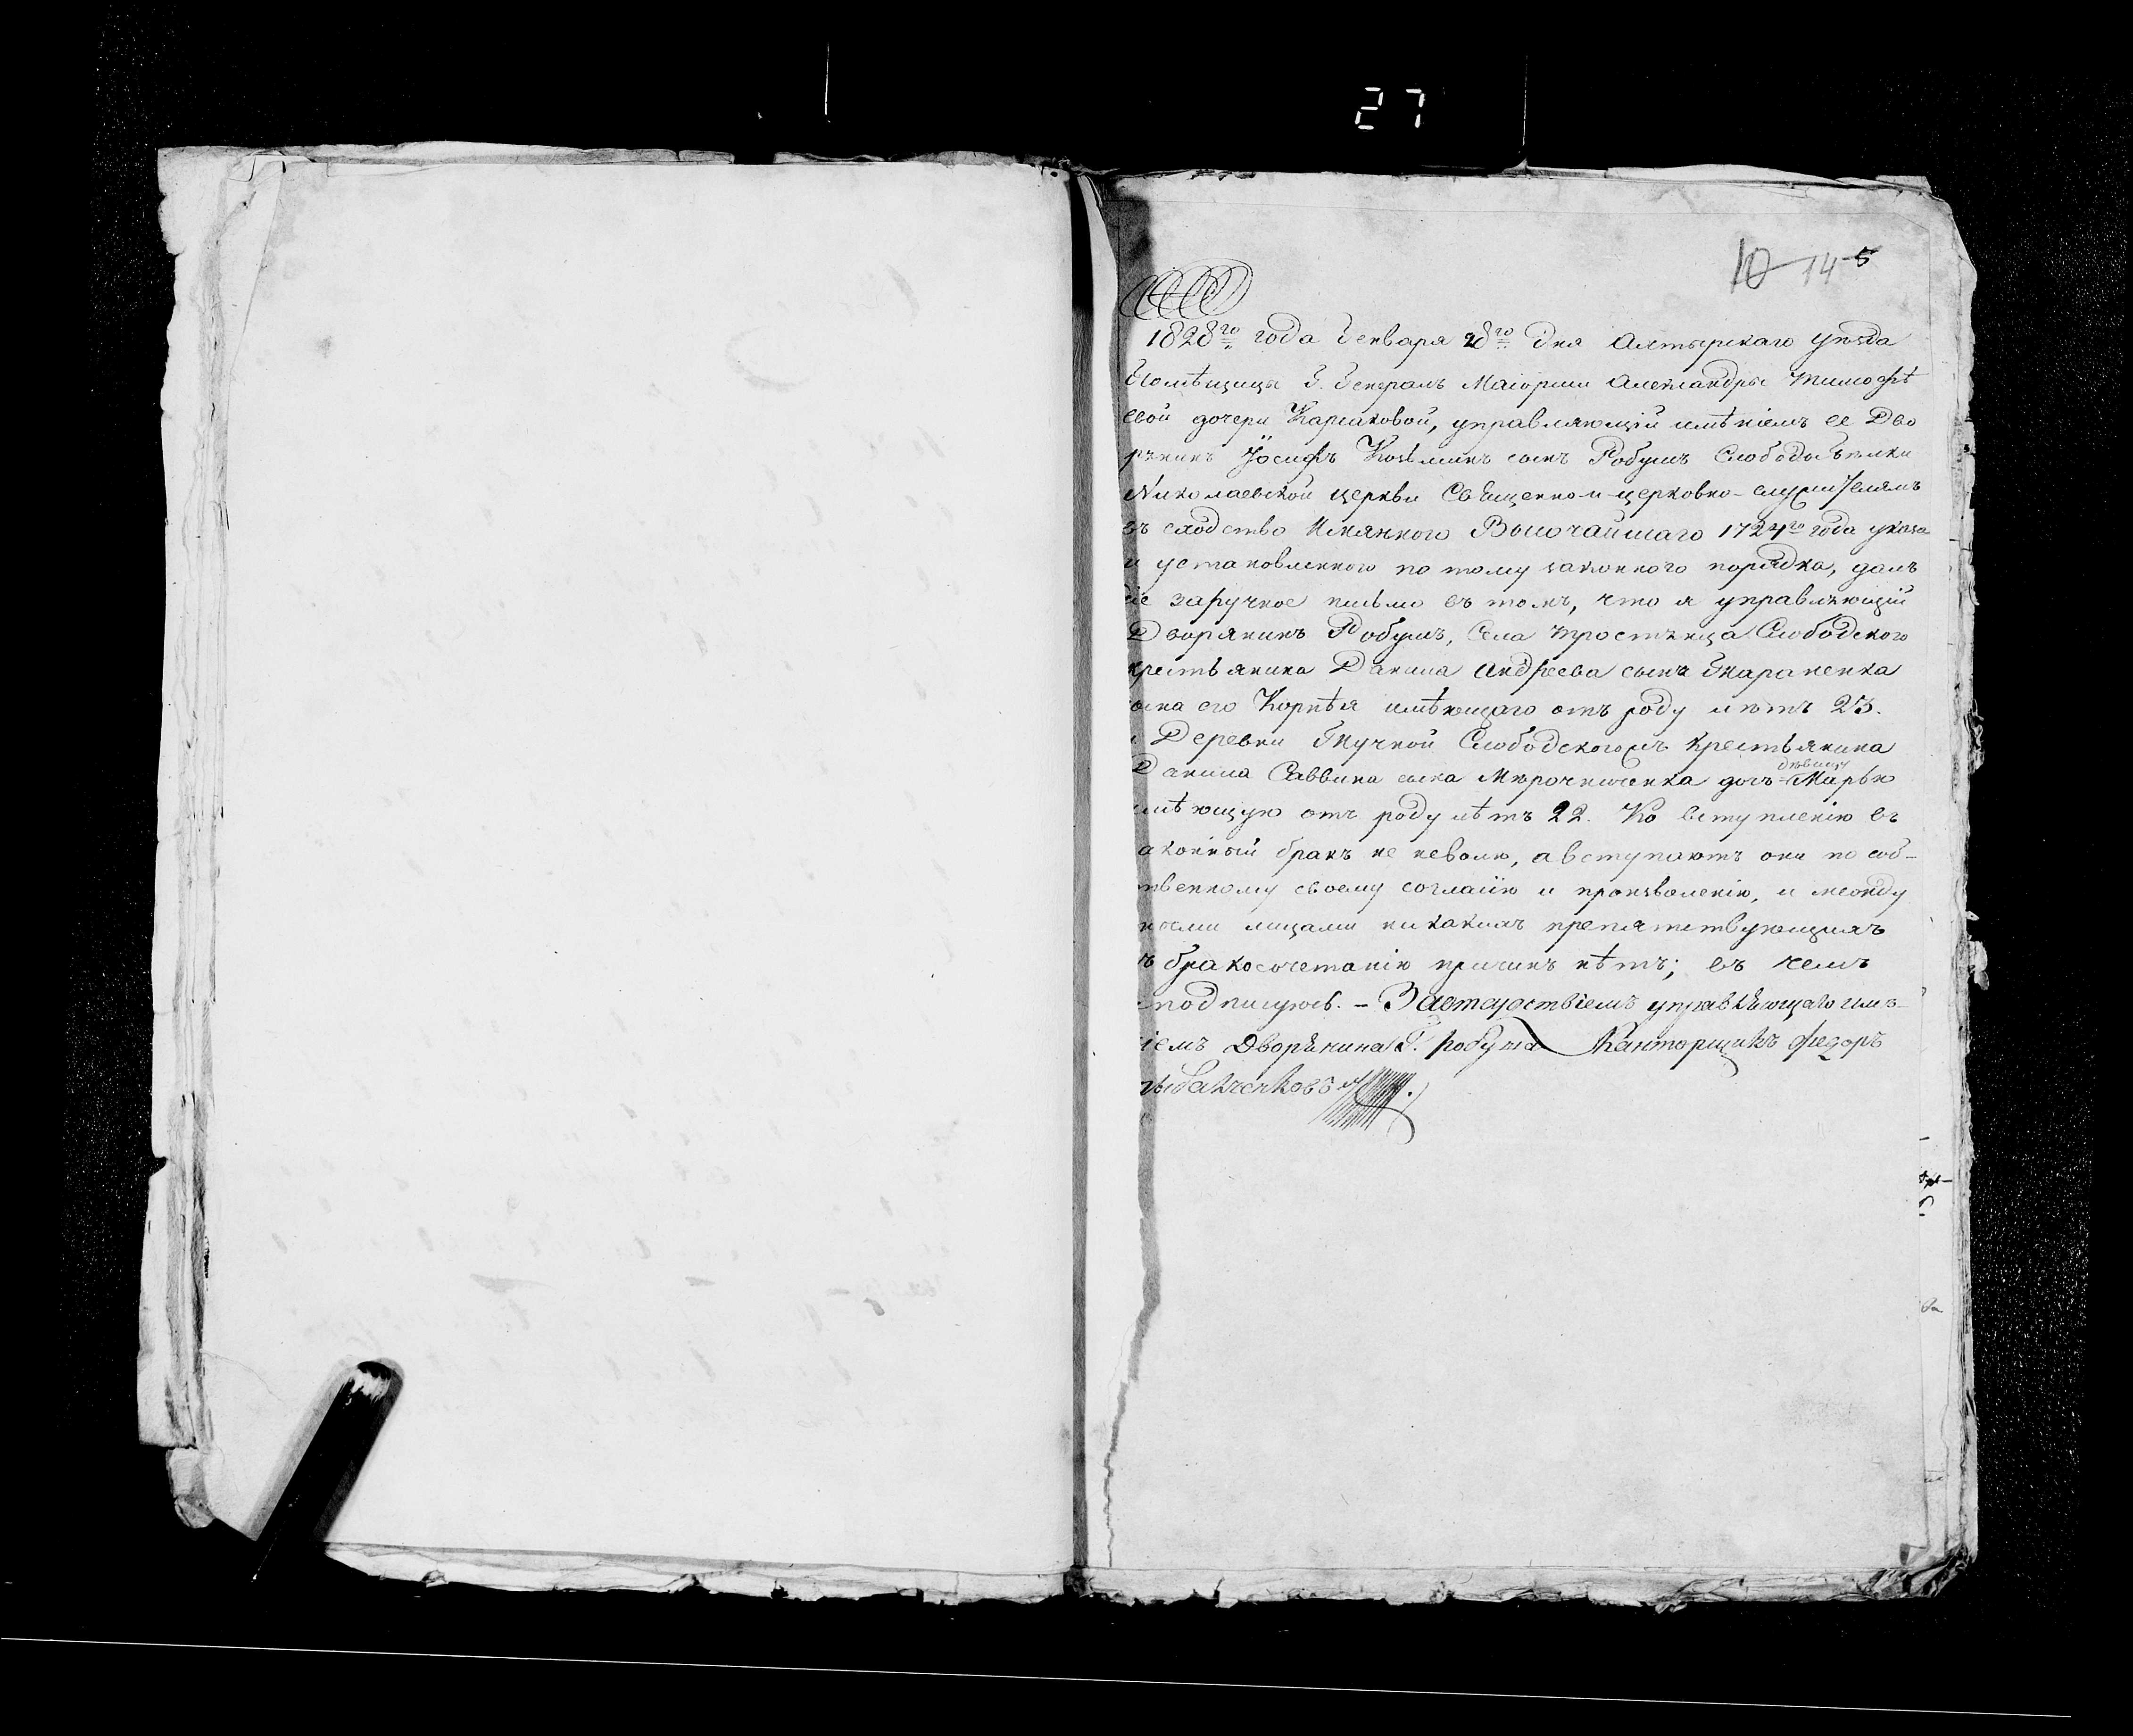 27
10 14 5
1828го года Генваря 28го дня Ахтырскаго уѣзда
Помѣщицы Г. Генералъ Маіорши Александры Тимофѣ
евой дочери Карсаковой, управляющій имѣніемъ ее Дво
рянинъ Іосифъ Козьминъ сынъ Робушъ Слободы
Николаевской церкви Священно-и-церковно-служителямъ
въ сходство Имяннаго Высочайшаго 1724го года указа
и установленного по тому законного порядка, далъ
сіе заручное письмо въ томъ, что я управляющій
Дворянинъ Робушъ, Села Тростянца Слободского
крестьянина Данила Андреева сына Гнараненка
сына его Корнѣя имѣющаго отъ роду лѣтъ 23.
и Деревни Гнучкой Слободскогожъ крестьянина
дѣвицу
Данила Саввина сына Мирочниченка дочь Марью
имѣющую отъ роду лѣтъ 22. Ко вступленію въ
законный бракъ не неволю, а вступаютъ они по соб-
ственному своему согласію и произволенію, и между
ними лицами никакихъ препятствующихъ
къ бракосочетанію причинъ нѣтъ; въ чемъ
и подписуюсь. - За отсуствіемъ управляющаго имѣ-
ніемъ Дворянина Г. Робуша Канторщикъ Федоръ